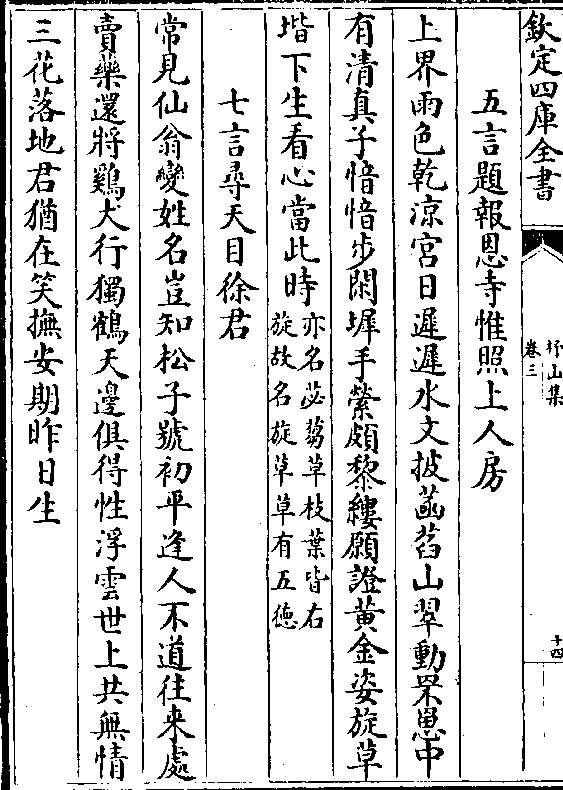 欽定四庫全書
杼山集
卷三
十四
五言題報恩寺惟照上人房
上界雨色乾涼宮日遲遲水文披菡萏山翠動罘罳中
有清真子愔愔步閑墀手縈頗黎縷願證黃金姿旋草
堦下生看心當此時亦名苾蒭草枝葉皆右
旋故名旋草草有五徳
七言尋天目徐君
常見仙翁變姓名豈知松子號初平逢人不道往來處
賣藥還將鷄犬行獨鶴天邊俱得性浮雲世上共無情
三花落地君猶在笑撫安期昨日生